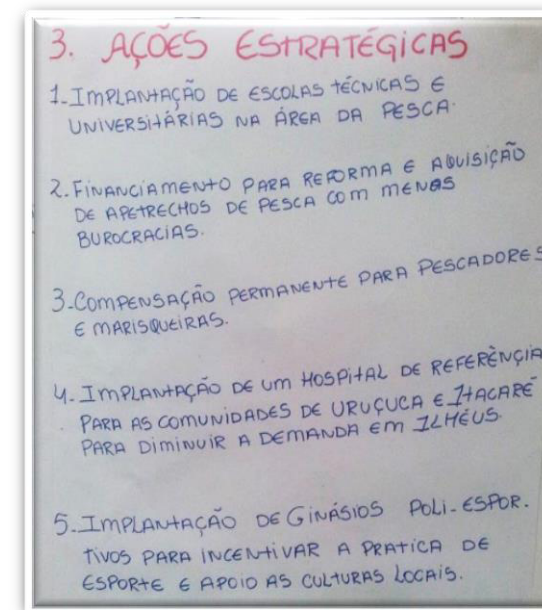 3. AÇÕES ESTRATÉGICAS
1-IMPLANTAÇÃO DE ESCOLAS TÉCNICAS E
UNIVERSITÁRIAS NA ÁREA DA PESCA.
2. FINANCIAMENTO PARA REFORMA E AQUISIÇÃO
DE APETRECHOS DE PESCA COM MENOS
BUROCRACIAS.
3-COMPENSAÇÃO PERMANENTE PARA PESCADORES
E MARISQUEIRAS.
4. IMPLANTAÇÃO DE UM HOSPITAL DE REFERÊNCIA
PARA AS COMUNIDADES DE URUÇUCA E ITACARÉ
PARA DIMINUIR A DEMANDA EM ILHÉUS.
5-IMPLANTAÇÃO DE GINÁSIOS POLI-ESPOR-
TIVOS PARA INCENTIVAR A PRATICA DE
ESPORTE E APOIO AS CULTURAS LOCAIS.